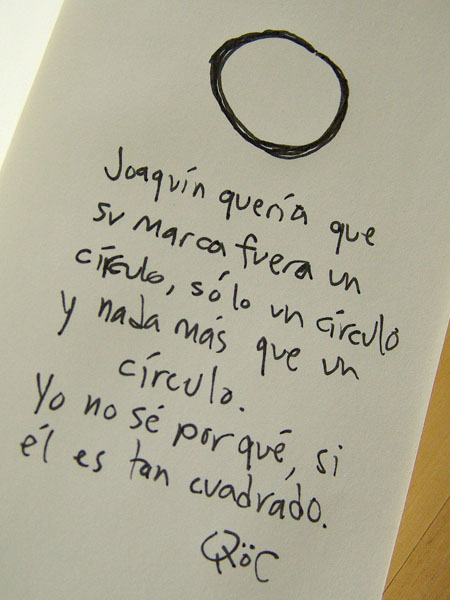 Joaquín quería que
su marca fuera un
círculo, sólo un círculo
y nada más que un
círculo.
Yo no sé por qué, si
él es tan cuadrado.